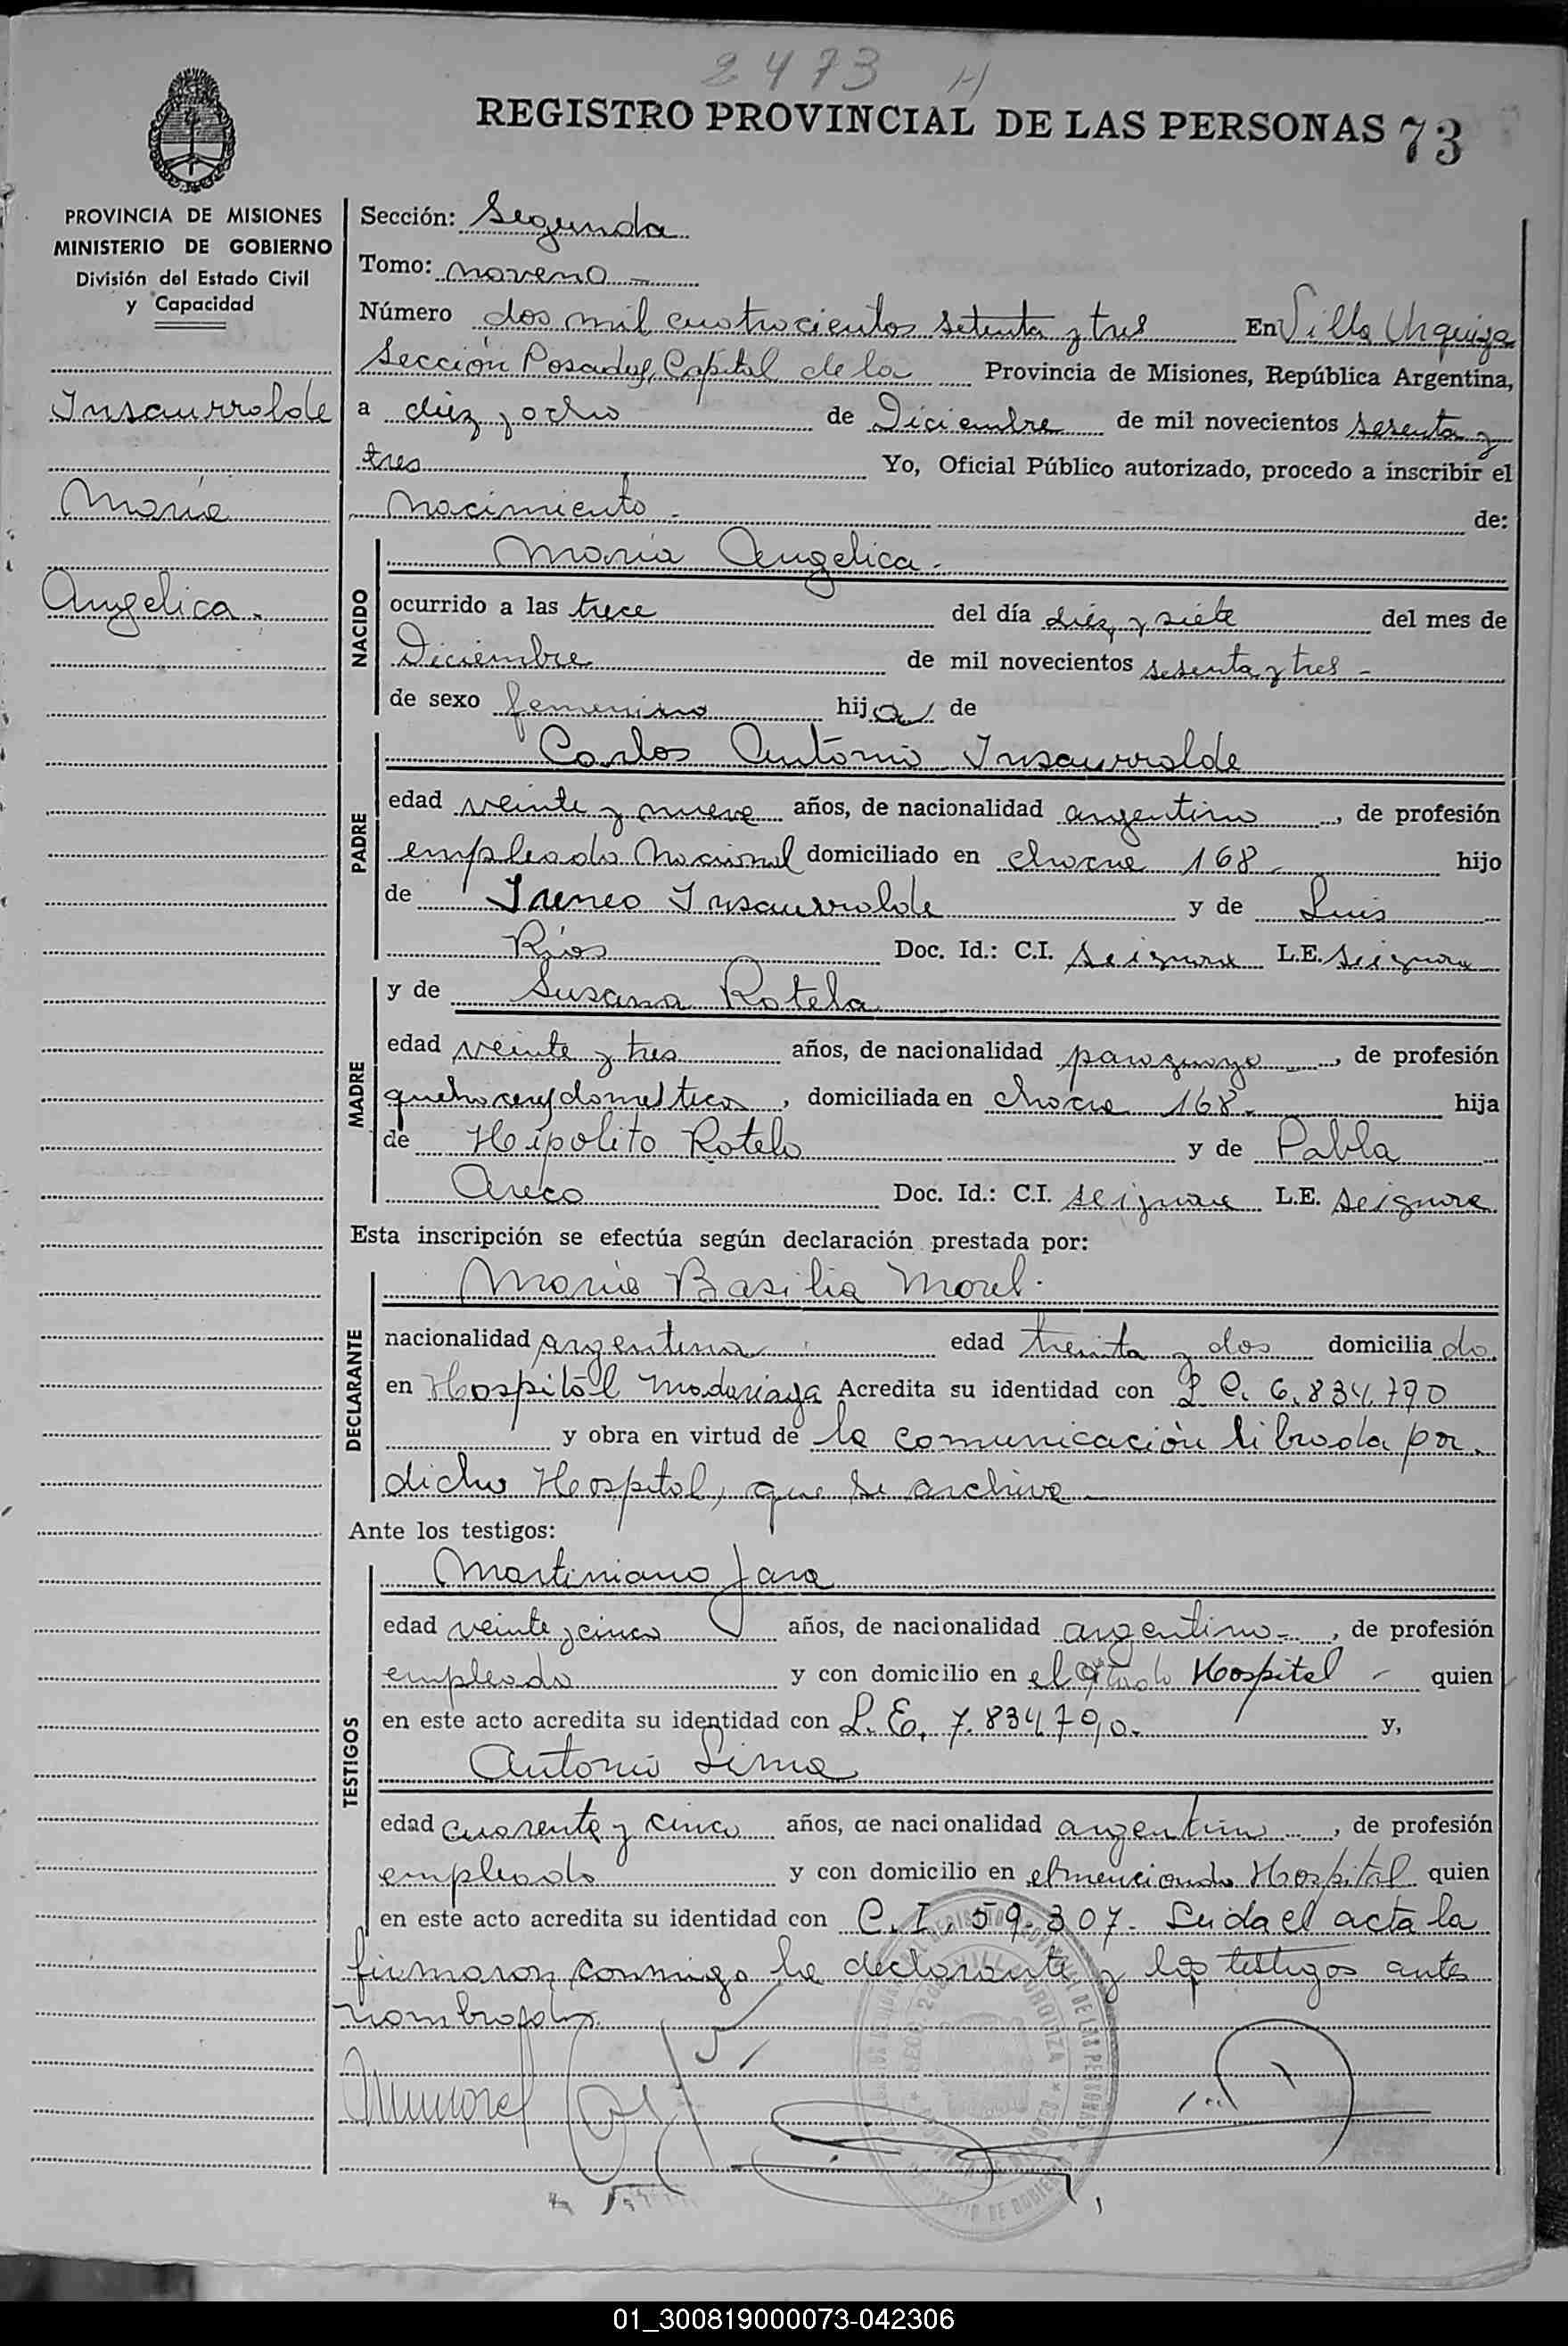 2473 H
REGISTRO PROVINCIAL DE LAS PERSONAS 73
PROVINCIA DE MISIONES
MINISTERIO DE GOBIERNO
División del Estado Civil
y Capacidad
Insaurralde
María
Angelica.
Sección: Segunda
Tomo: noveno
Número dos mil cuatrocientos setenta y tres En Villa Urquiza
Sección Posadas, Capital de la Provincia de Misiones, República Argentina,
a diez y ocho de Diciembre de mil novecientos sesenta y
tres Yo, Oficial Público autorizado, procedo a inscribir el
nacimiento de:
NACIDO
María Angelica.
ocurrido a las trece del día diez y siete del mes de
Diciembre de mil novecientos sesenta y tres
de sexo femenino hija de
PADRE
Carlos Antonio Insaurralde
edad veinte y nueve años, de nacionalidad argentino, de profesión
empleado Nacional domiciliado en chacra 168 hijo
de Ireneo Insaurralde y de Luis
Ríos Doc. Id.: C.I. se ignora L.E. se ignora
MADRE
y de Susana Rotela
edad veinte y tres años, de nacionalidad paraguaya, de profesión
quehaceres domesticos, domiciliada en chacra 168. hija
de Hipolito Rotela y de Pabla
Areco Doc. Id.: C.I. se ignora L.E. se ignora
Esta inscripción se efectúa según declaración prestada por:
DECLARANTE
María Basilia Morel.
nacionalidad argentina edad treinta y dos domiciliado
en Hospital Madariaga Acredita su identidad con L C. 6.834.790
y obra en virtud de la comunicación librada por
dicho Hospital, que se archiva
Ante los testigos:
TESTIGOS
Martiniano Jara
edad veinte y cinco años, de nacionalidad argentino, de profesión
empleado y con domicilio en el citado Hospital quien
en este acto acredita su identidad con L. E. 7.834.790. y,
Antonio Lima
edad cuarenta y cinco años, de nacionalidad argentino, de profesión
empleado y con domicilio en el mencionado Hospital quien
en este acto acredita su identidad con C. I. 59.307. Leida el acta la
firmaron conmigo la declarante y los testigos ante
nombrados.
01_300819000073-042306